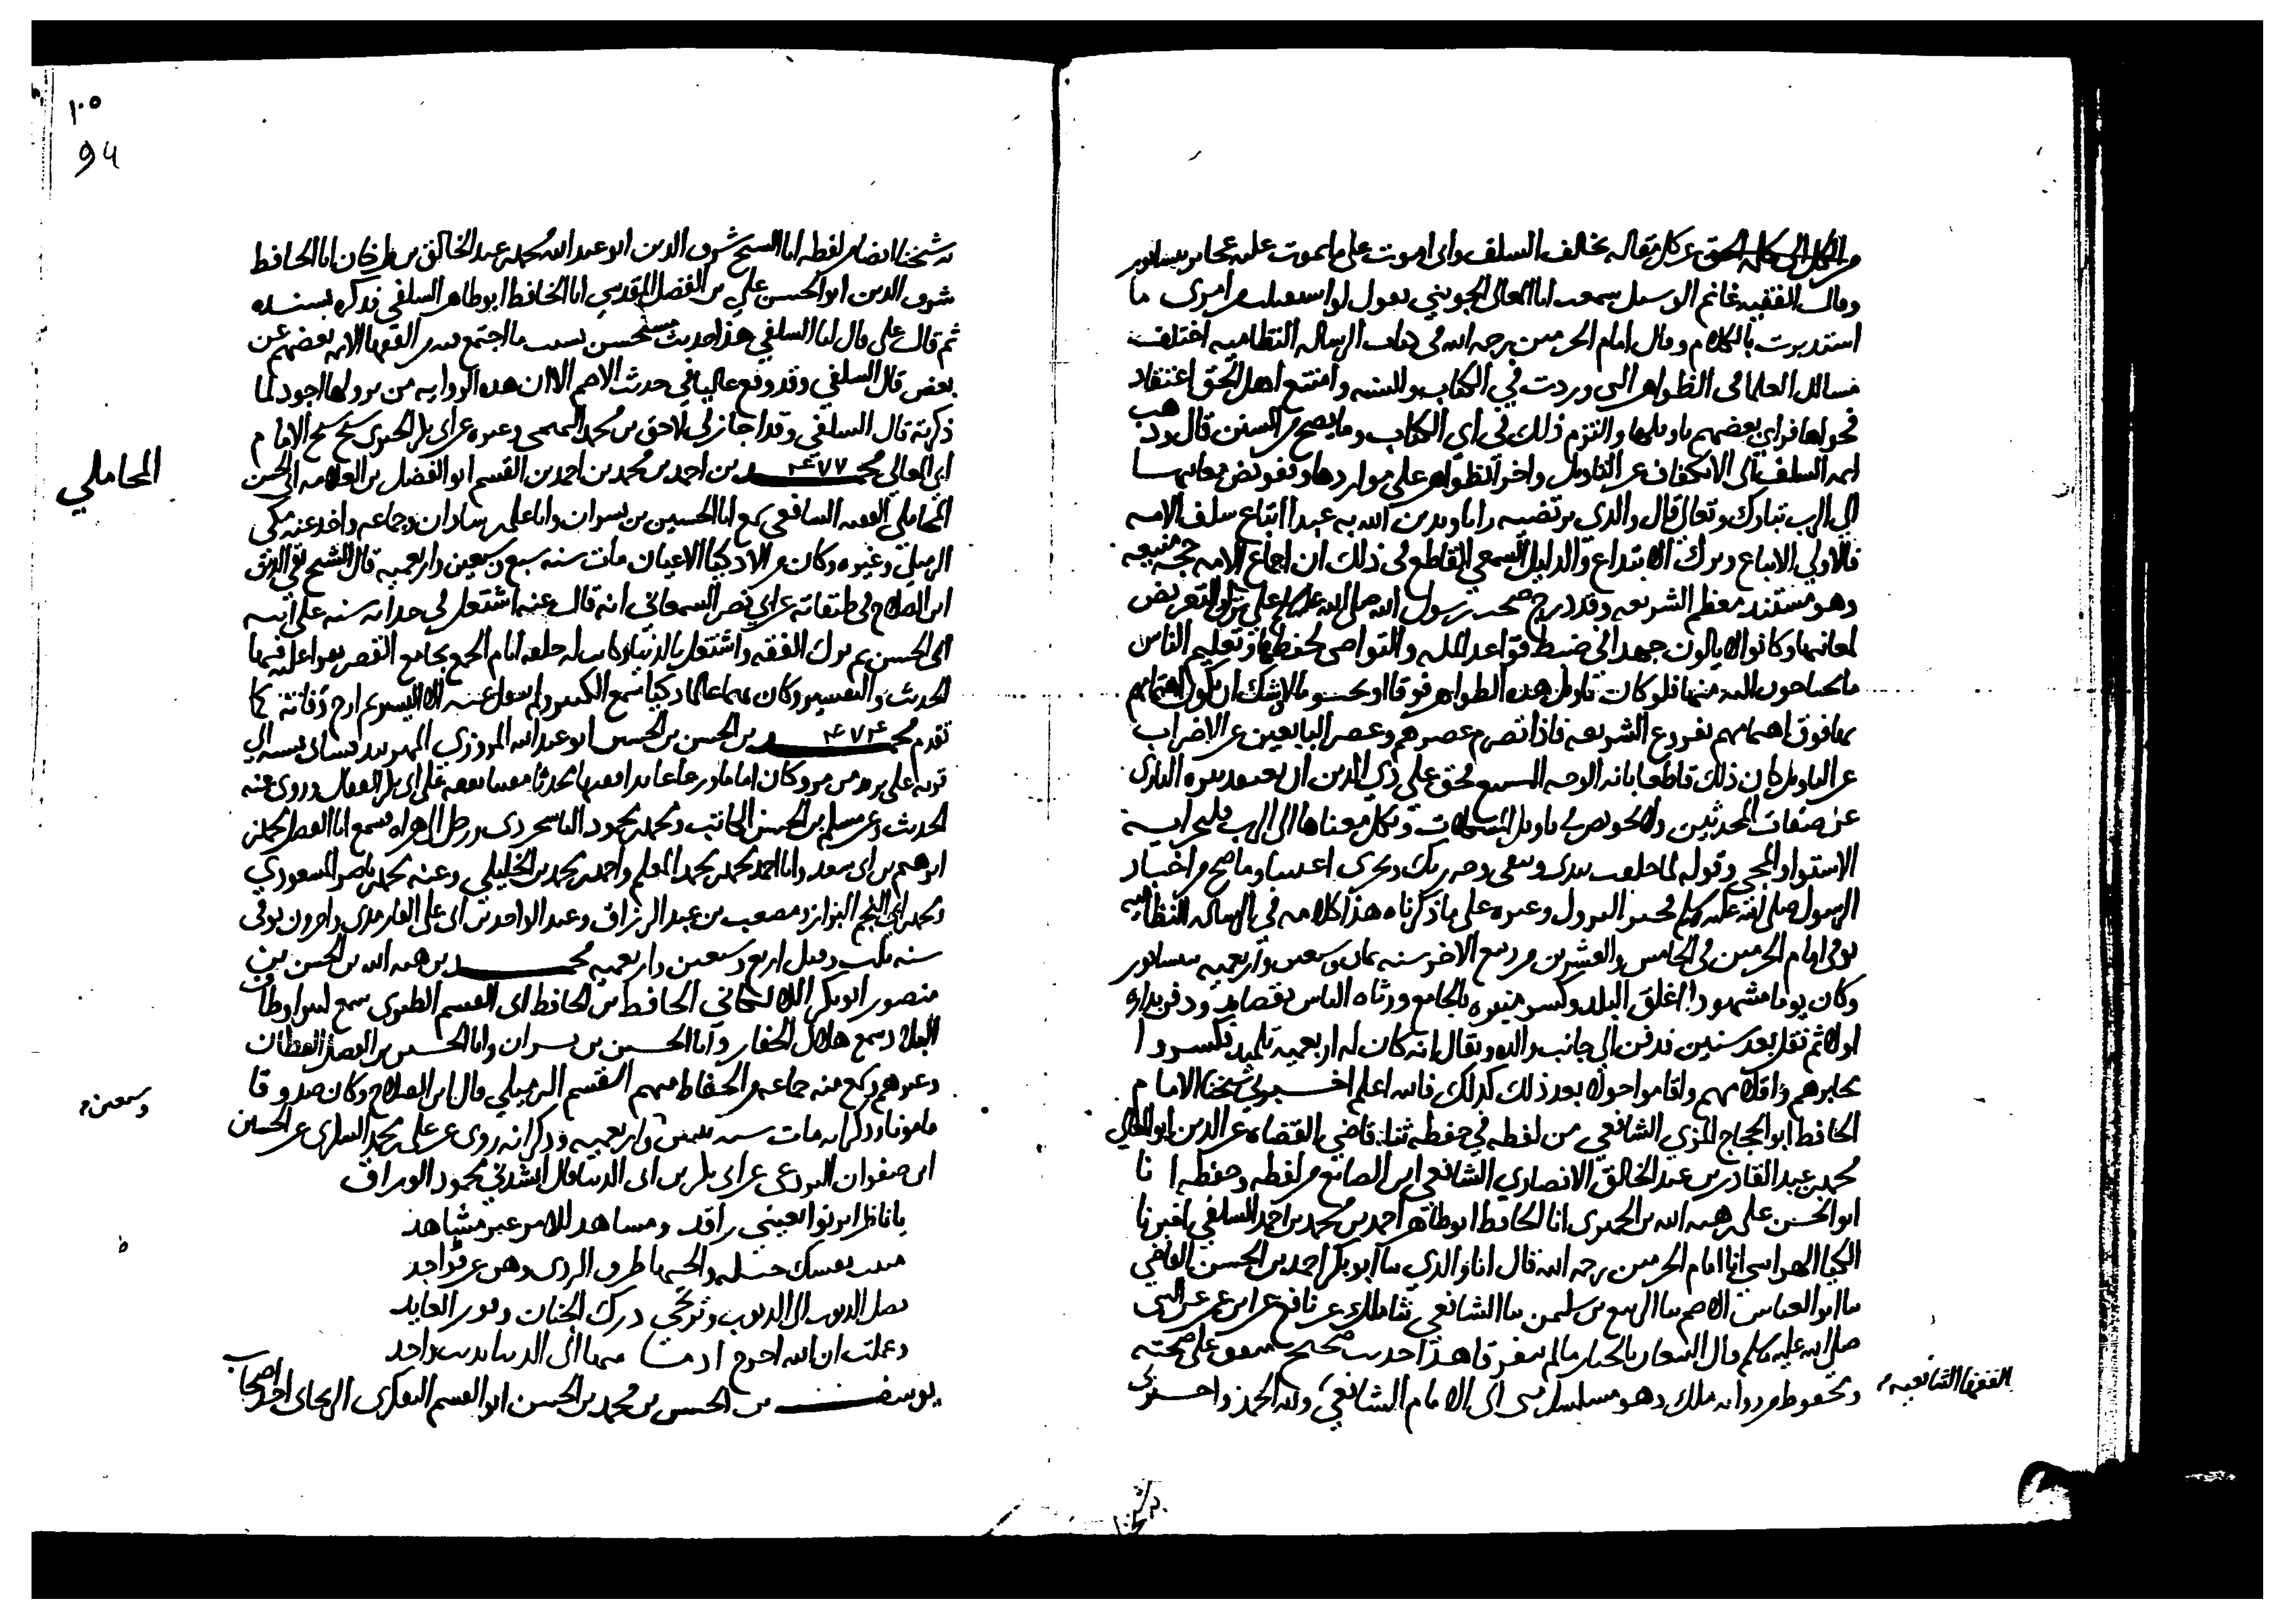 عن كل مقاله تخالف السلف واني اموت على ما يموت عليه عجايز نيسابور
وقال الفقيه غانم الموسيلي سمعت ابا المعالي الجويني يقول لو استقبلت من امري ما
استدبرت بالكلام وقال امام الحرمين رحمه الله في كتاب الرساله النظاميه اختلفت
مسالك العلما في الظواهر التي وردت في الكتاب والسنه وامتنع اهل الحق اعتقاد
فحواها فراي بعضهم تاويلها والتزم ذلك في اي الكتاب وما يصح من السنن قال وذهب
ايمه السلف الى الانكفاف عن التاويل واجرا الظواهر على مواردها وتفويض معانيها
الى الرب تبارك وتعالى قال والذي نرتضيه رايا وندين الله به عقدا اتباع سلف الامه
فالاولى الاتباع وترك الابتداع والدليل السمعي القاطع في ذلك ان اجماع الامه حجه متبعه
وهو مستند معظم الشريعه وقد درج صحب رسول الله صلى الله عليه وسلم على ترك التعرض
لمعانيها وكانوا لا يالون جهدا في ضبط قواعد المله والتواصي بحفظها وتعليم الناس
ما يحتاجون اليه منها فلو كان تاويل هذه الظواهر مسوغا او محتوما لاوشك ان يكون اهتمامهم
بها فوق اهتمامهم بفروع الشريعه فاذا تصرم عصرهم وعصر التابعين على الاضراب
عن التاويل كان ذلك قاطعا بانه الوجه المتبع فحق على ذي الدين ان يعتقد تنزه الباري
عن صفات المحدثين ولا يخوض في تاويل المشكلات ويكل معناها الى الرب فليجر ايه
الاستوا والمجي وقوله لما خلقت بيدي ويبقى وجه ربك وتجري باعيننا وما صح من اخبار
الرسول صلى الله عليه وسلم كخبر النزول وغيره على ما ذكرناه هذا كلامه في الرساله النظاميه
توفي امام الحرمين في الخامس والعشرين من ربيع الاخر سنه ثمان وسبعين واربعميه بنيسابور
وكان يوما مشهودا اغلق البلد وكسر منبره بالجامع ورثاه الناس بقصايد ودفن بداره
اولا ثم نقل بعد سنين فدفن الى جانب والده ويقال انه كان له اربعميه تلميذ فكسروا
محابرهم واقلامهم واقاموا حولا بعد ذلك كذلك فالله اعلم اخبرني شيخنا الامام
الحافظ ابو الحجاج المزي الشافعي من لفظه في حفظه ثنا قاضي القضاه عز الدين ابو المعالي
محمد بن عبد القادر بن عبد الخالق الانصاري الشافعي ابن الصايغ من لفظه وحفظه انا
ابو الحسن علي بن هبه الله بن الحميري انا الحافظ ابو طاهر احمد بن محمد بن احمد السلفي اخبرنا
الكيا الهراسي انا امام الحرمين رحمه الله قال انا والدي ثنا ابو بكر احمد بن الحسن القاضي
ثنا ابو العباس الاصم ثنا الربيع بن سليمن ثنا الشافعي ثنا ملك عن نافع عن ابن عمر عن النبي
صلى الله عليه وسلم قال البيعان بالخيار ما لم يتفرقا هذا حديث صحيح متفق على صحته
ومحفوظ من روايه ملك وهو مسلسل مني الى الامام الشافعي ولله الحمد واخبرني
الفقها الشافعيه
به شيخنا
١٠٥
94
به شيخنا ايضا من لفظه انا الشيخ شرف الدين ابو عبد الله محمد بن عبد الخالق بن طرخان انا الحافظ
شرف الدين ابو الحسن علي بن المفضل المقدسي انا الحافظ ابو طاهر السلفي فذكره بسنده
ثم قال علي قال لنا السلفي هذا حديث مستحسن بسبب ما اجتمع فيه من الفقها الايمه بعضهم عن
بعض قال السلفي وقد وقع عاليا في حديث الاصم الا ان هذه الروايه من نزولها اجود لما
ذكرته قال السلفي وقد اجاز لي لاحق بن محمد التميمي وغيره عن ابي بكر الحيري شيخ شيخ الامام
ابي المعالي محمد ٤٧٧ بن احمد بن محمد بن احمد بن القسم ابو الفضل بن العلامه ابي الحسن
المحاملي
المحاملي الفقيه الشافعي سمع ابا الحسين بن بشران وابا علي بن شاذان وجماعه واخذ عنه مكي
الرميلي وغيره وكان من الاذكيا الاعيان مات سنه سبع وسبعين واربعميه قال الشيخ تقي الدين
ابن الصلاح في طبقاته عن ابي نصر السمعاني انه قال عنه اشتغل في حداثه سنه على ابيه
ابي الحسن ثم ترك الفقه واشتغل بالدنيا وكانت له حلقه ايام الجمع بجامع القصر يقرا عليه فيها
الحديث والتفسير وكان فهما عالما ذكيا سمع الكثير ولم ينقل عنه الا اليسير ثم ارخ وفاته كما
تقدم محمد ٤٧٤ بن الحسن بن الحسين ابو عبد الله المروزي المهربندقشاي نسبه الى
قريه على بريد من مرو وكان اماما ورعا عابدا فقيها محدثا مفتيا تفقه على ابي بكر القفال وروى عنه
الحديث وعن مسلم بن الحسن الكاتب ومحمد بن محمود الساسجردي ورحل الى هراه فسمع ابا الفضل محمد بن
ابرهيم بن ابي سعد وابا احمد محمد بن محمد المعلم واحمد بن محمد بن الخليلي وعنه محمد بن ناصر المسعودي
ومحمد بن ابي النجم البزاز ومصعب بن عبد الرزاق وعبد الواحد بن ابي علي الفارمذي واخرون توفي
سنه ثلث وقيل اربع وسبعين واربعميه محمد بن هبه الله بن الحسن بن
منصور ابو بكر اللالكائي الحافظ بن الحافظ ابي القسم الطبري سمع
وسمع هلال الحفار وابا الحسين بن بشران وابا الحسين بن الفضل القطان
وغيرهم وسمع منه جماعه من الحفاظ منهم ابو القسم الرميلي قال ابن الصلاح وكان صدوقا
وسبعين
مامونا وذكر انه مات سنه ثنتين واربعميه وذكر انه روى عن علي بن محمد السكري عن الحسين
ابن صفوان البردعي عن ابي بكر بن ابي الدنيا قال انشدني محمود الوراق
يا ناظرا يرنو بعيني راقد ومشاهد للامر غير مشاهد
منيت نفسك ضله وابحتها طرق الردى وهن غير قواصد
تصل الذنوب الى الذنوب وترتجي درك الجنان وفوز العابد
وعلمت ان الله اخرج ادما منها الى الدنيا بذنب واحد
يوسف بن الحسن بن محمد بن الحسن ابو القسم التفكري الزنجاني احد اصحاب